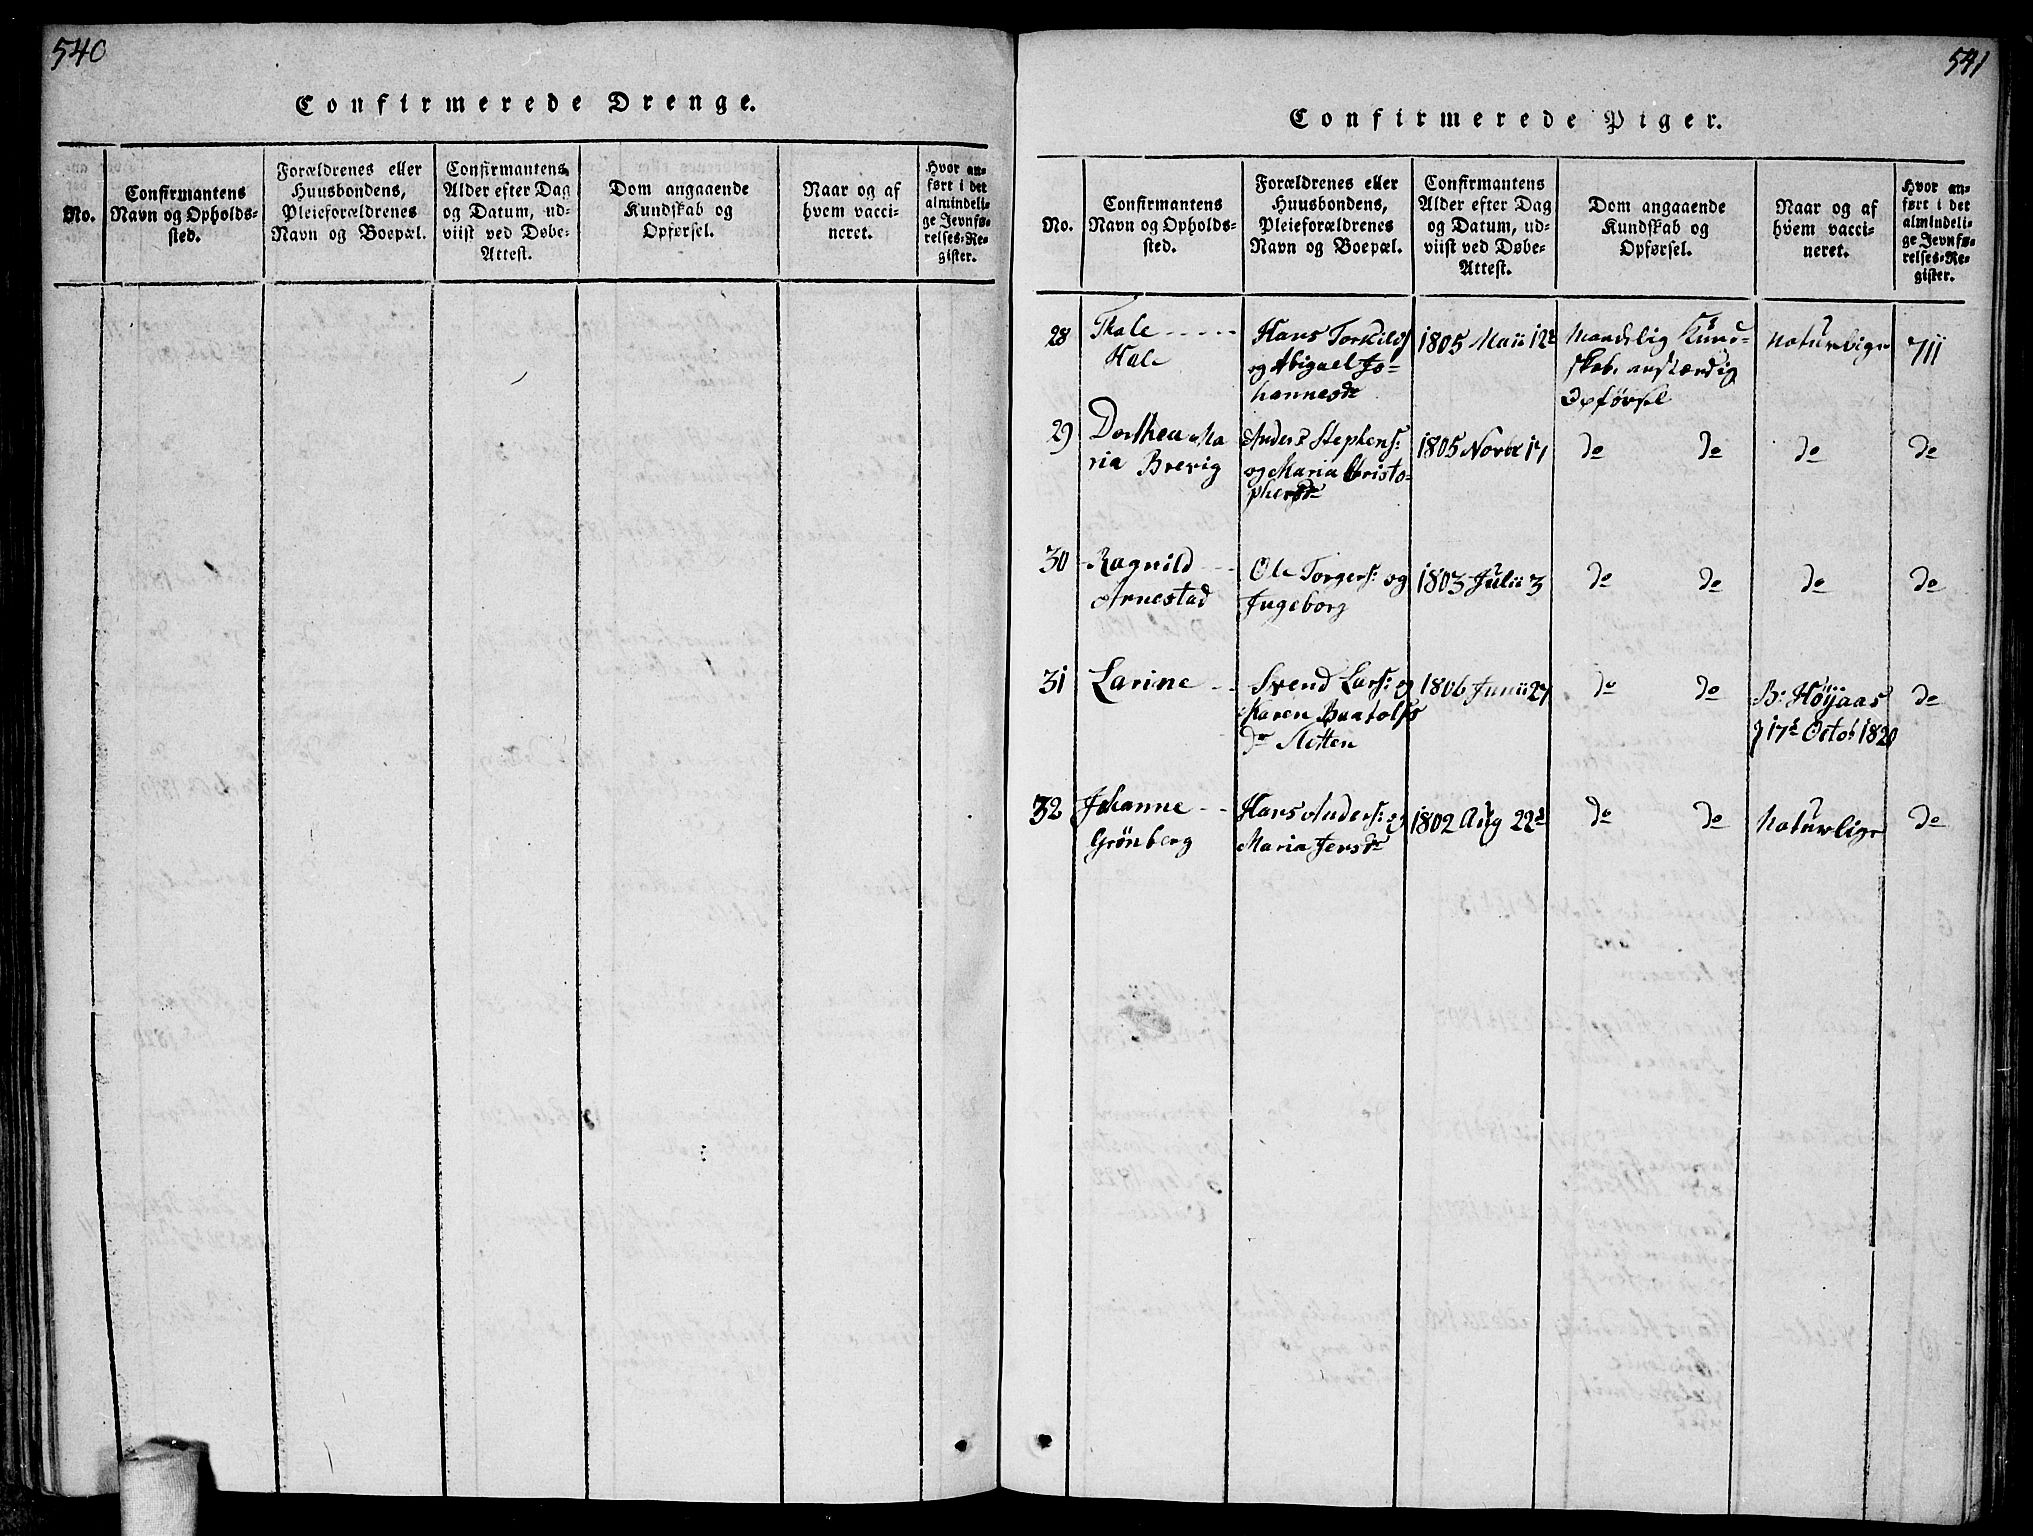 540
Confirmerede Drenge.
No.
Confirmantens
Navn og Opholds-
sted.
Forældrenes eller
Huusbondens,
Pleieforældrenes
Navn og Boepæl.
Confirmantens
Alder efter Dag
og Datum, ud-
viist ved Døbe-
Attest.
Dom angaaende
Kundskab og
Opførsel.
Naar og af
hvem vacci-
neret.
Hvor an-
ført i det
almindeli-
ge Jevnfø-
relses-Re-
gister.
541
Confirmerede Piger.
No.
Confirmantens
Navn og Opholds-
sted.
Forældrenes eller
Huusbondens,
Pleieforældrenes
Navn og Boepæl.
Confirmantens
Alder efter Dag
og Datum, ud-
viist ved Døbe-
Attest.
Dom angaaende
Kundskab og
Opførsel.
Naar og af
hvem vacci-
neret.
Hvor an-
ført i det
almindeli-
ge Jevnfø-
relses-Re-
gister.
28
Thale
Hole
Hans Torkilds
og Abigael Jo-
hannesdr
1805 Maii 12t
Maadelig Kund-
skab, anstændig
Opførsel
Naturlige
711
29
Dorthea Ma
ria Brevig
Anders Stephens:
og Maria Christo-
phersdr
1805 Novbr 17
do do
do
do
30
Ragnild
Arnestad
Ole Torgers: og
Ingeborg
1803 Julii 3
do do
do
do
31
Larine
Svend Lars: og
Karen Buntolfs
dr Sletten
1806 Junii 27
do do
B: Höijaas
d 17d Octob 1820
do
32
Johanne
Grönberg
Hans Anders: og
Maria Jensdr
1802 Aug 22d
do do
Naturlige
do